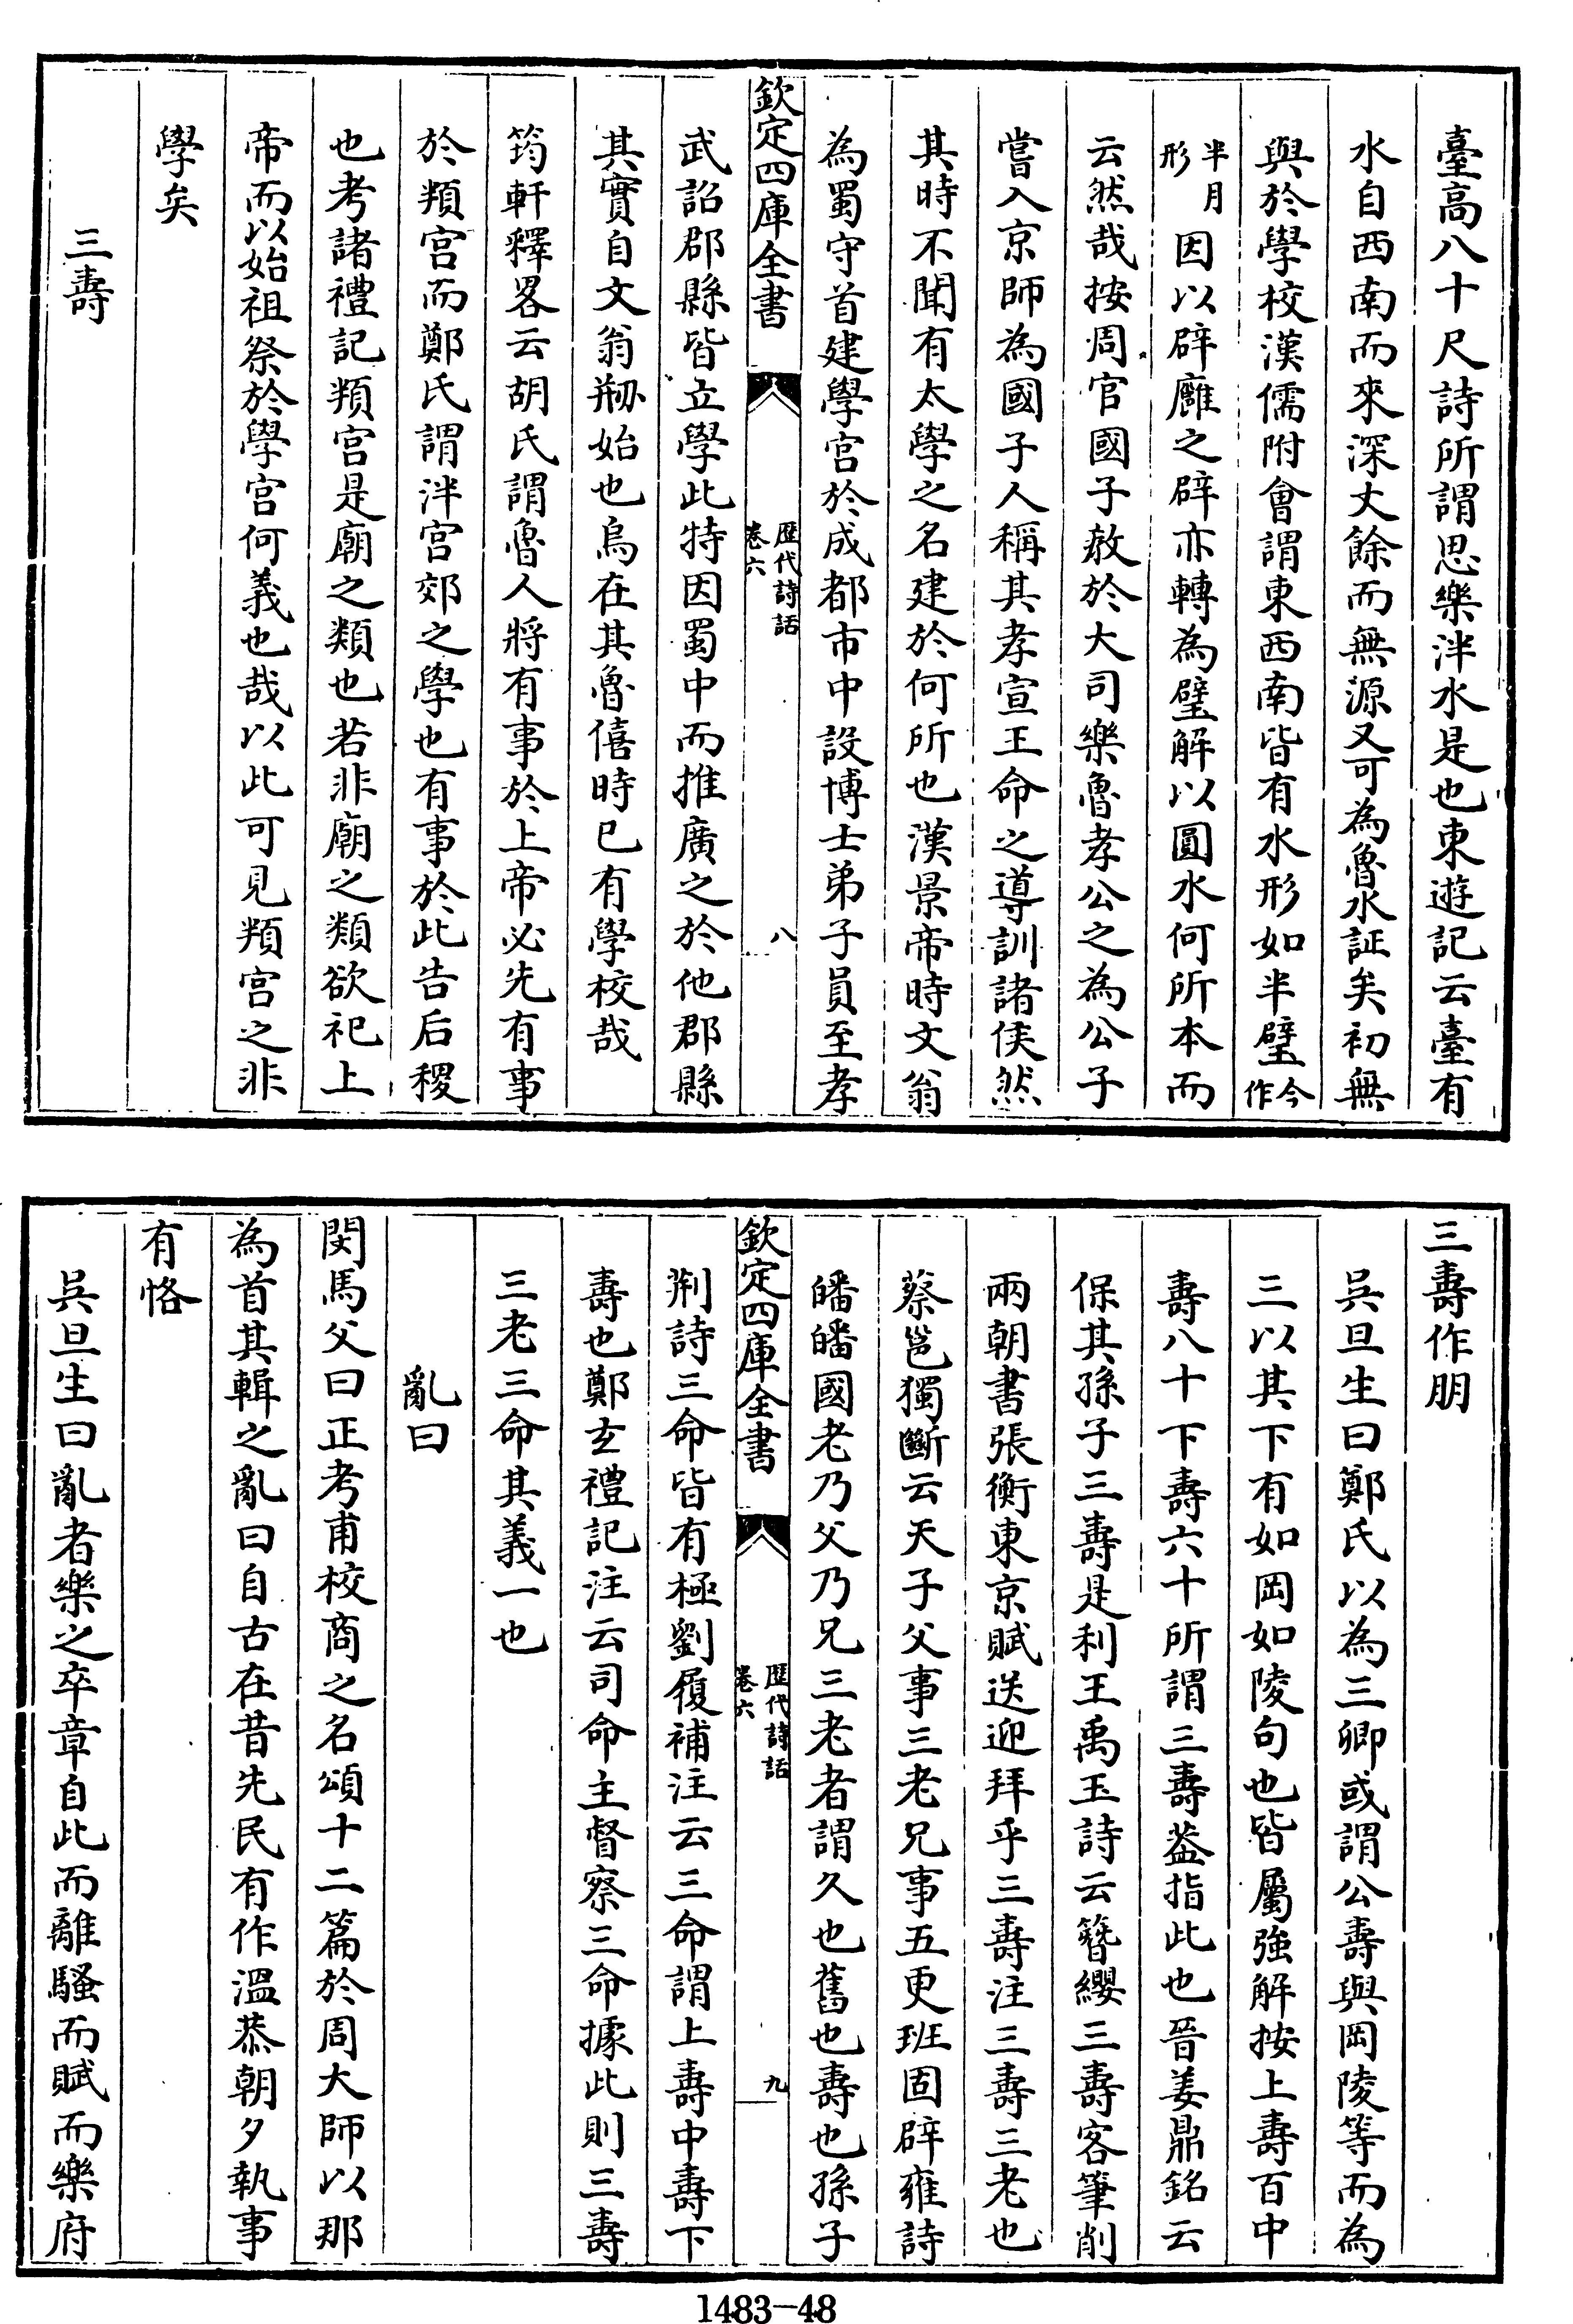 臺高八十尺詩所謂思樂泮水是也東遊記云臺有
水自西南而來深丈餘而無源又可為魯水証矣初無
與於學校漢儒附會謂東西南皆有水形如半璧今作
半月形因以辟廱之辟亦轉為璧解以圓水何所本而
云然哉按周官國子敎於大司樂魯孝公之為公子
嘗入京師為國子人稱其孝宣王命之導訓諸侯然
其時不聞有太學之名建於何所也漢景帝時文翁
為蜀守首建學宮於成都市中設博士弟子員至孝
欽定四庫全書
歷代詩話
卷六
八
武詔郡縣皆立學此特因蜀中而推廣之於他郡縣
其實自文翁刱始也烏在其魯僖時已有學校哉
筠軒釋畧云胡氏謂魯人將有事於上帝必先有事
於頖宮而鄭氏謂泮宮郊之學也有事於此告后稷
也考諸禮記頖宮是廟之類也若非廟之類欲祀上
帝而以始祖祭於學宮何義也哉以此可見頖宮之非
學矣
三壽
三壽作朋
吳旦生曰鄭氏以為三卿或謂公壽與岡陵等而為
三以其下有如岡如陵句也皆屬強解按上壽百中
壽八十下壽六十所謂三壽葢指此也晉姜鼎銘云
保其孫子三壽是利王禹玉詩云簪纓三壽客筆削
兩朝書張衡東京賦送迎拜乎三壽注三壽三老也
蔡邕獨斷云天子父事三老兄事五更班固辟雍詩
皤皤國老乃父乃兄三老者謂久也舊也壽也孫子
欽定四庫全書
歷代詩話
卷六
九
荆詩三命皆有極劉履補注云三命謂上壽中壽下
壽也鄭玄禮記注云司命主督察三命據此則三壽
三老三命其義一也
亂曰
閔馬父曰正考甫校商之名頌十二篇於周大師以那
為首其輯之亂曰自古在昔先民有作溫恭朝夕執事
有恪
吳旦生曰亂者樂之卒章自此而離騷而賦而樂府
1483—48